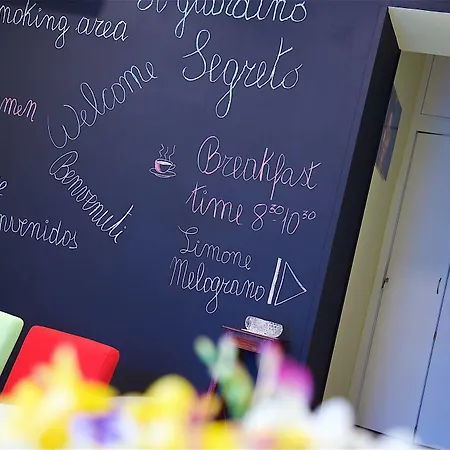 moking area
Il giardino
Segreto
men
Welcome
Benvenuti
envenidos
Breakfast
time 8³⁰ 10³⁰
Limone
Melograno